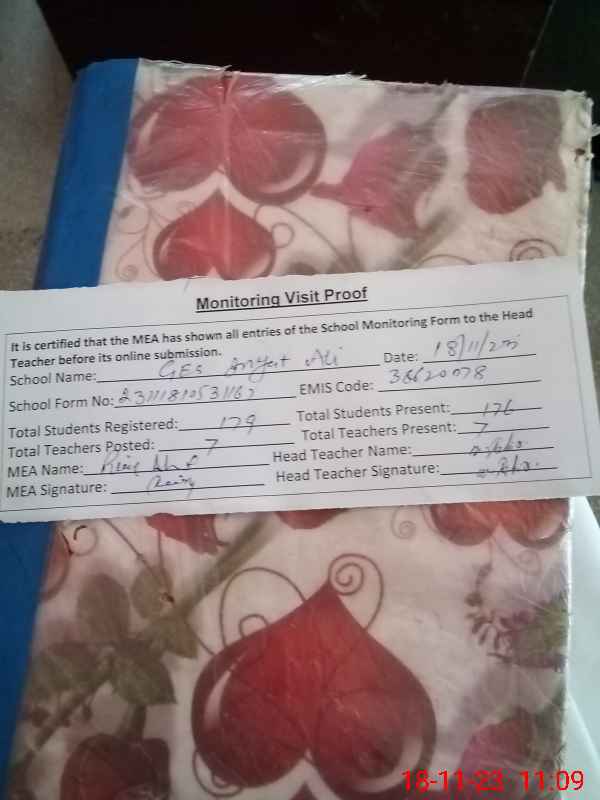 Monitoring Visit Proof
It is certified that the MEA has shown all entries of the School Monitoring Form to the Head
Teacher before its online submission.
School Name: GES Ali Date: 18/11/
School Form No: EMIS Code: 38620078
Total Students Registered: 179 Total Students Present: 176
Total Teachers Posted: 7 Total Teachers Present: 7
MEA Name: Head Teacher Name:
MEA Signature: Head Teacher Signature:
18-11-23 11:09